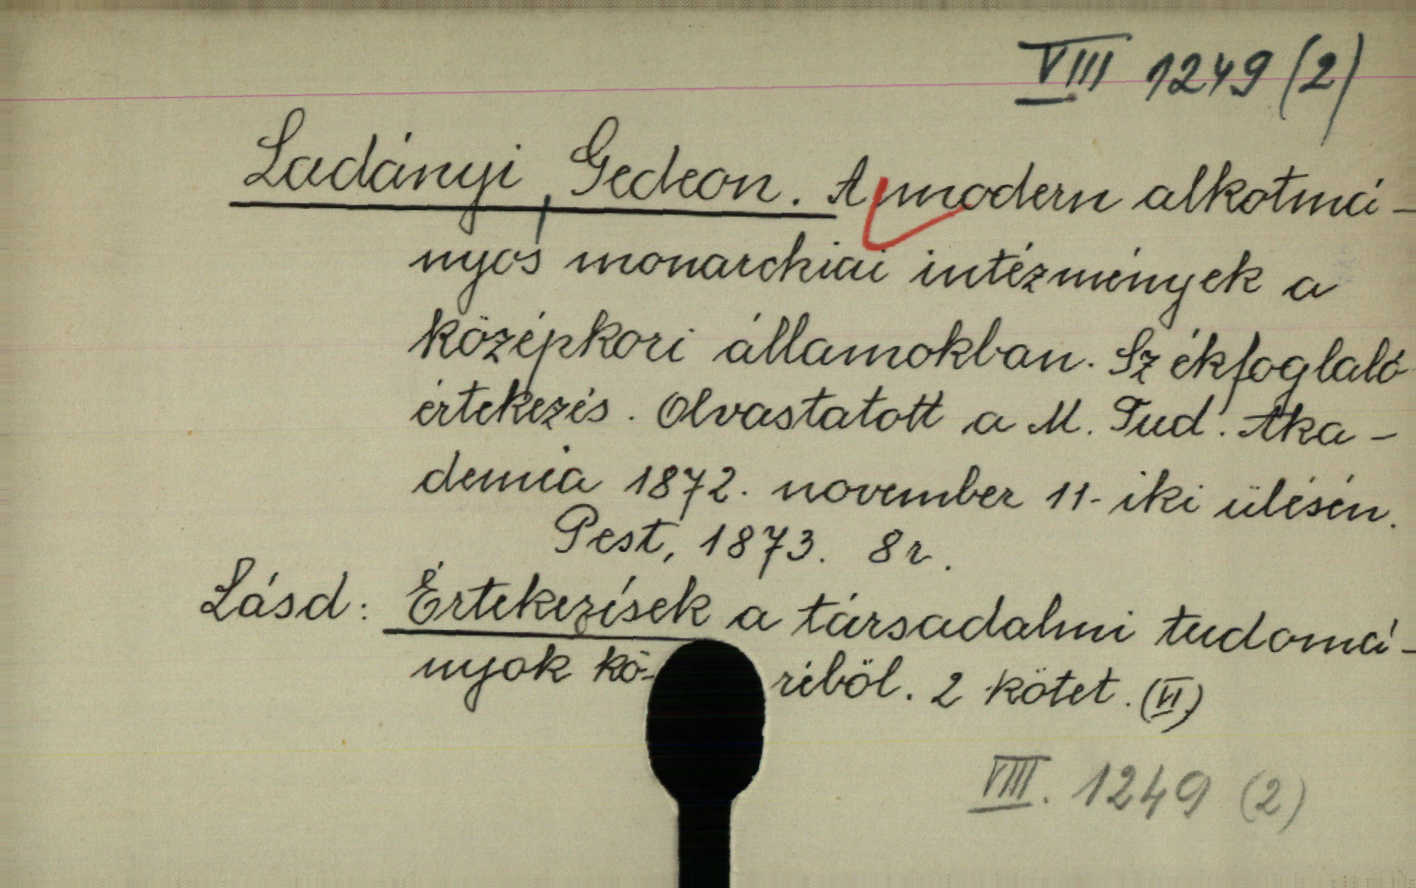 VIII 1249 (2)
Ladányi, Gedeon. A modern alkotmá-
nyos monarchiai intézmények a
középkori államokban. Székfoglaló
értekezés. Olvastatott a M. Tud. Aka-
demia 1872. november 11-iki ülésén.
Pest, 1873. 8r.
Lásd: Értekezések a társadalmi tudomá-
nyok kö- réböl. 2 kötet. (VI)
VIII. 1249 (2)